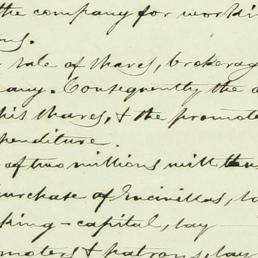 the company for worki
ns.
sale of shares, brokerag
any. Consequently the a
his shares, & the promote
penditure.
of two millions will then
urchase of Encinillas, to
king-capital, say
moters & patrons, say